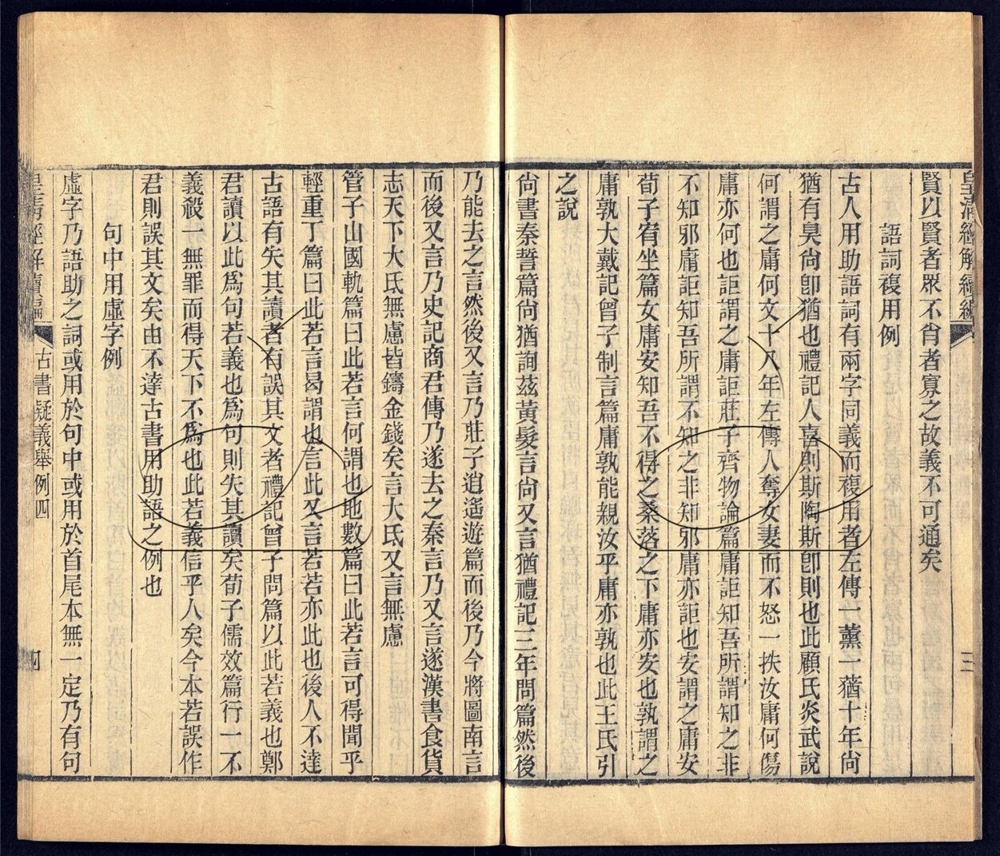 皇清經解續編
三
賢以賢者眾不肖者寡之故義不可通矣
語詞複用例
古人用助語詞有兩字同義而複用者左傳一薰一蕕十年尚
猶有臭尚卽猶也禮記人喜則斯陶斯卽則也此顧氏炎武說
何謂之庸何文十八年左傳人奪女妻而不怒一抶汝庸何傷
庸亦何也詎謂之庸詎莊子齊物論篇庸詎知吾所謂知之非
不知邪庸詎知吾所謂不知之非知邪庸亦詎也安謂之庸安
荀子宥坐篇女庸安知吾不得之桑落之下庸亦安也孰謂之
庸孰大戴記曾子制言篇庸孰能親汝乎庸亦孰也此王氏引
之說
尚書秦誓篇尚猶詢茲黃髮言尚又言猶禮記三年問篇然後
乃能去之言然後又言乃莊子逍遙遊篇而後乃今將圖南言
而後又言乃史記商君傳乃遂去之秦言乃又言遂漢書食貨
志天下大氐無慮皆鑄金錢矣言大氐又言無慮
管子山國軌篇曰此若言何謂也地數篇曰此若言可得聞乎
輕重丁篇曰此若言曷謂也言此又言若若亦此也後人不達
古語有失其讀者有誤其文者禮記曾子問篇以此若義也鄭
君讀以此爲句若義也爲句則失其讀矣荀子儒效篇行一不
義殺一無罪而得天下不爲也此若義信乎人矣今本若誤作
君則誤其文矣由不達古書用助語之例也
句中用虛字例
虛字乃語助之詞或用於句中或用於首尾本無一定乃有句
皇清經解續編
古書疑義舉例四